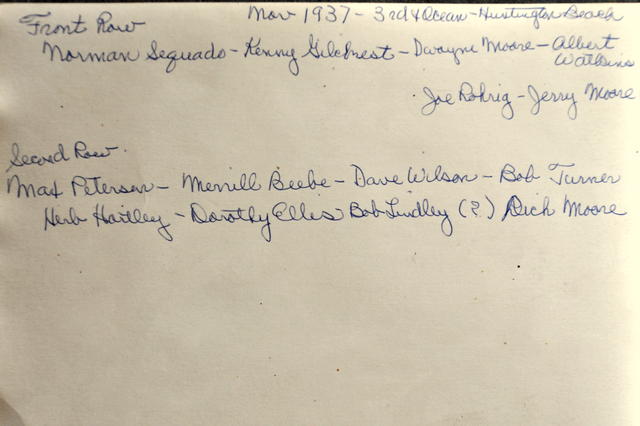 Front Row
Nov 1937 - 3rd & Ocean - Huntington Beach
Norman Sequado - Kenny Gilchrest - Dwayne Moore - Albert
Watkins
Joe Rohrig - Jerry Moore
Second Row
Max Peterson - Merrill Beebe - Dave Wilson - Bob Turner
Herb Hartley - Dorothy Ellis Bob Lindley (?) Dick Moore